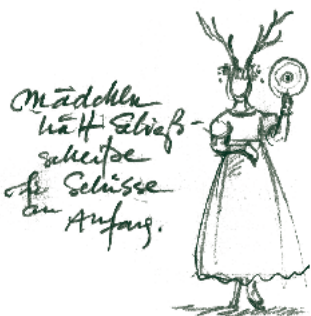 Mädchen
hält Schieß-
scheibe
ofr Schüsse
am Anfang.